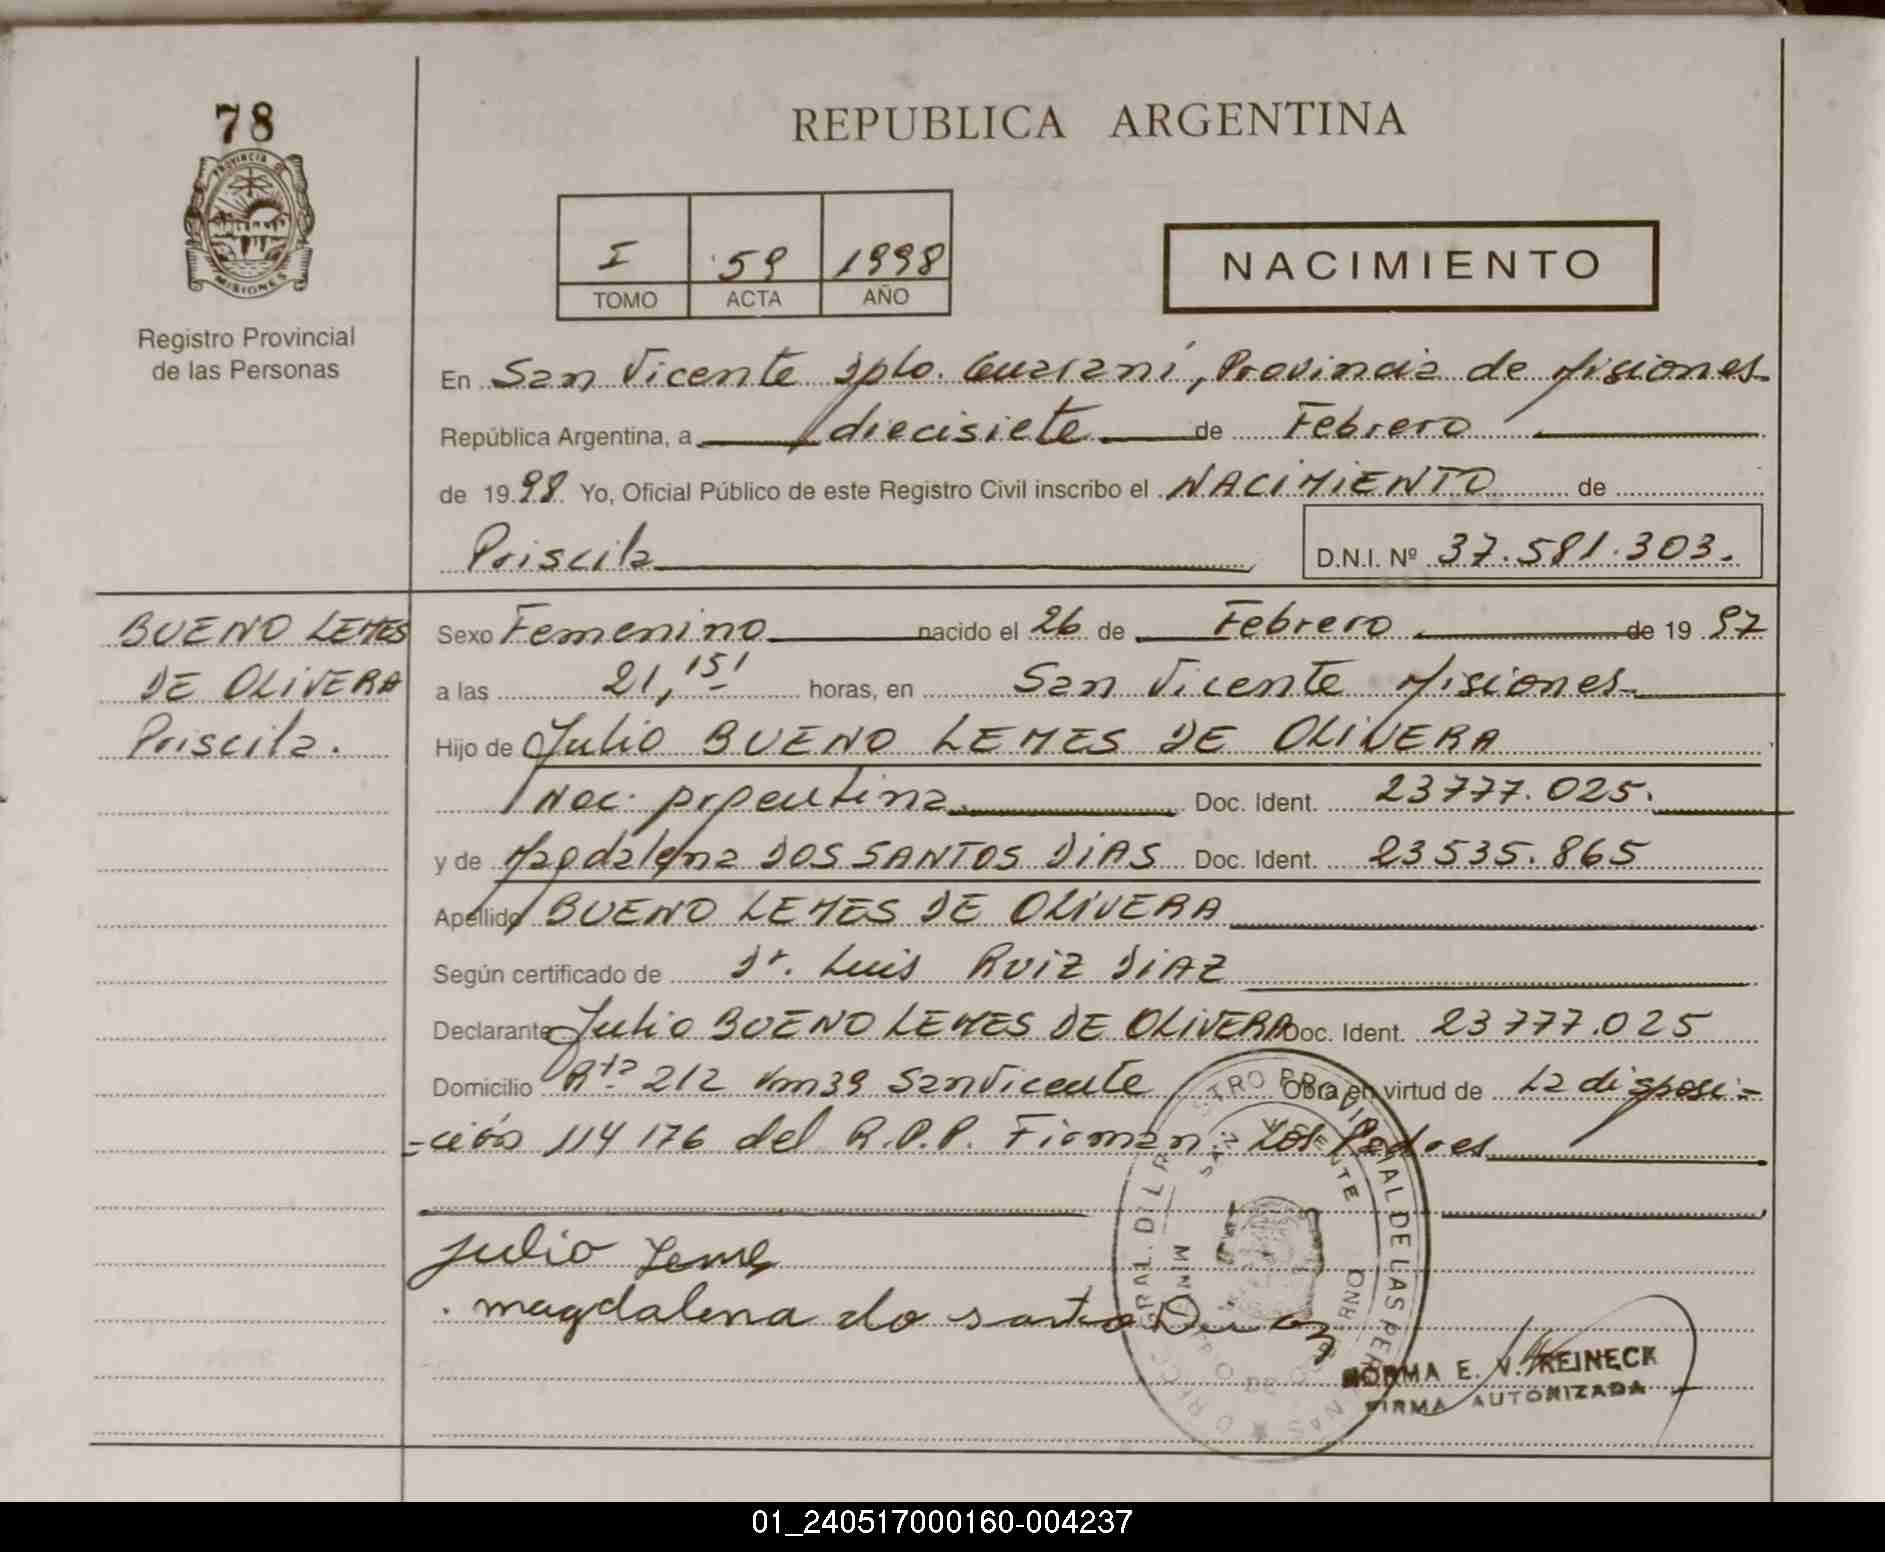 78
PROVINCIA DE
MISIONES
Registro Provincial
de las Personas
REPUBLICA ARGENTINA
I 59 1998
TOMO ACTA AÑO
NACIMIENTO
En San Vicente Dpto. Guaraní, Provincia de Misiones
República Argentina, a diecisiete de Febrero
de 1998 Yo, Oficial Público de este Registro Civil inscribo el NACIMIENTO de
Priscila D.N.I. Nº 37.581.303.
BUENO LEMES
DE OLIVERA
Priscila.
Sexo Femenino nacido el 26 de Febrero de 1997
a las 21,15' horas, en San Vicente Misiones
Hijo de Julio BUENO LEMES DE OLIVERA
Nac. Argentina Doc. Ident. 23777.025.
y de Magdalena DOS SANTOS DIAS Doc. Ident. 23535.865
Apellido BUENO LEMES DE OLIVERA
Según certificado de Dr. Luis RUIZ DIAZ
Declarante Julio BUENO LEMES DE OLIVERA Doc. Ident. 23777.025
Domicilio Rta 212 Km39 San Vicente Obra en virtud de La disposi-
-ción 114176 del R.P.P. Firman Los Padres
julio Leme
magdalena do santo
SAN VICENTE
NORMA E. V. REINECK
FIRMA AUTORIZADA
01_240517000160-004237